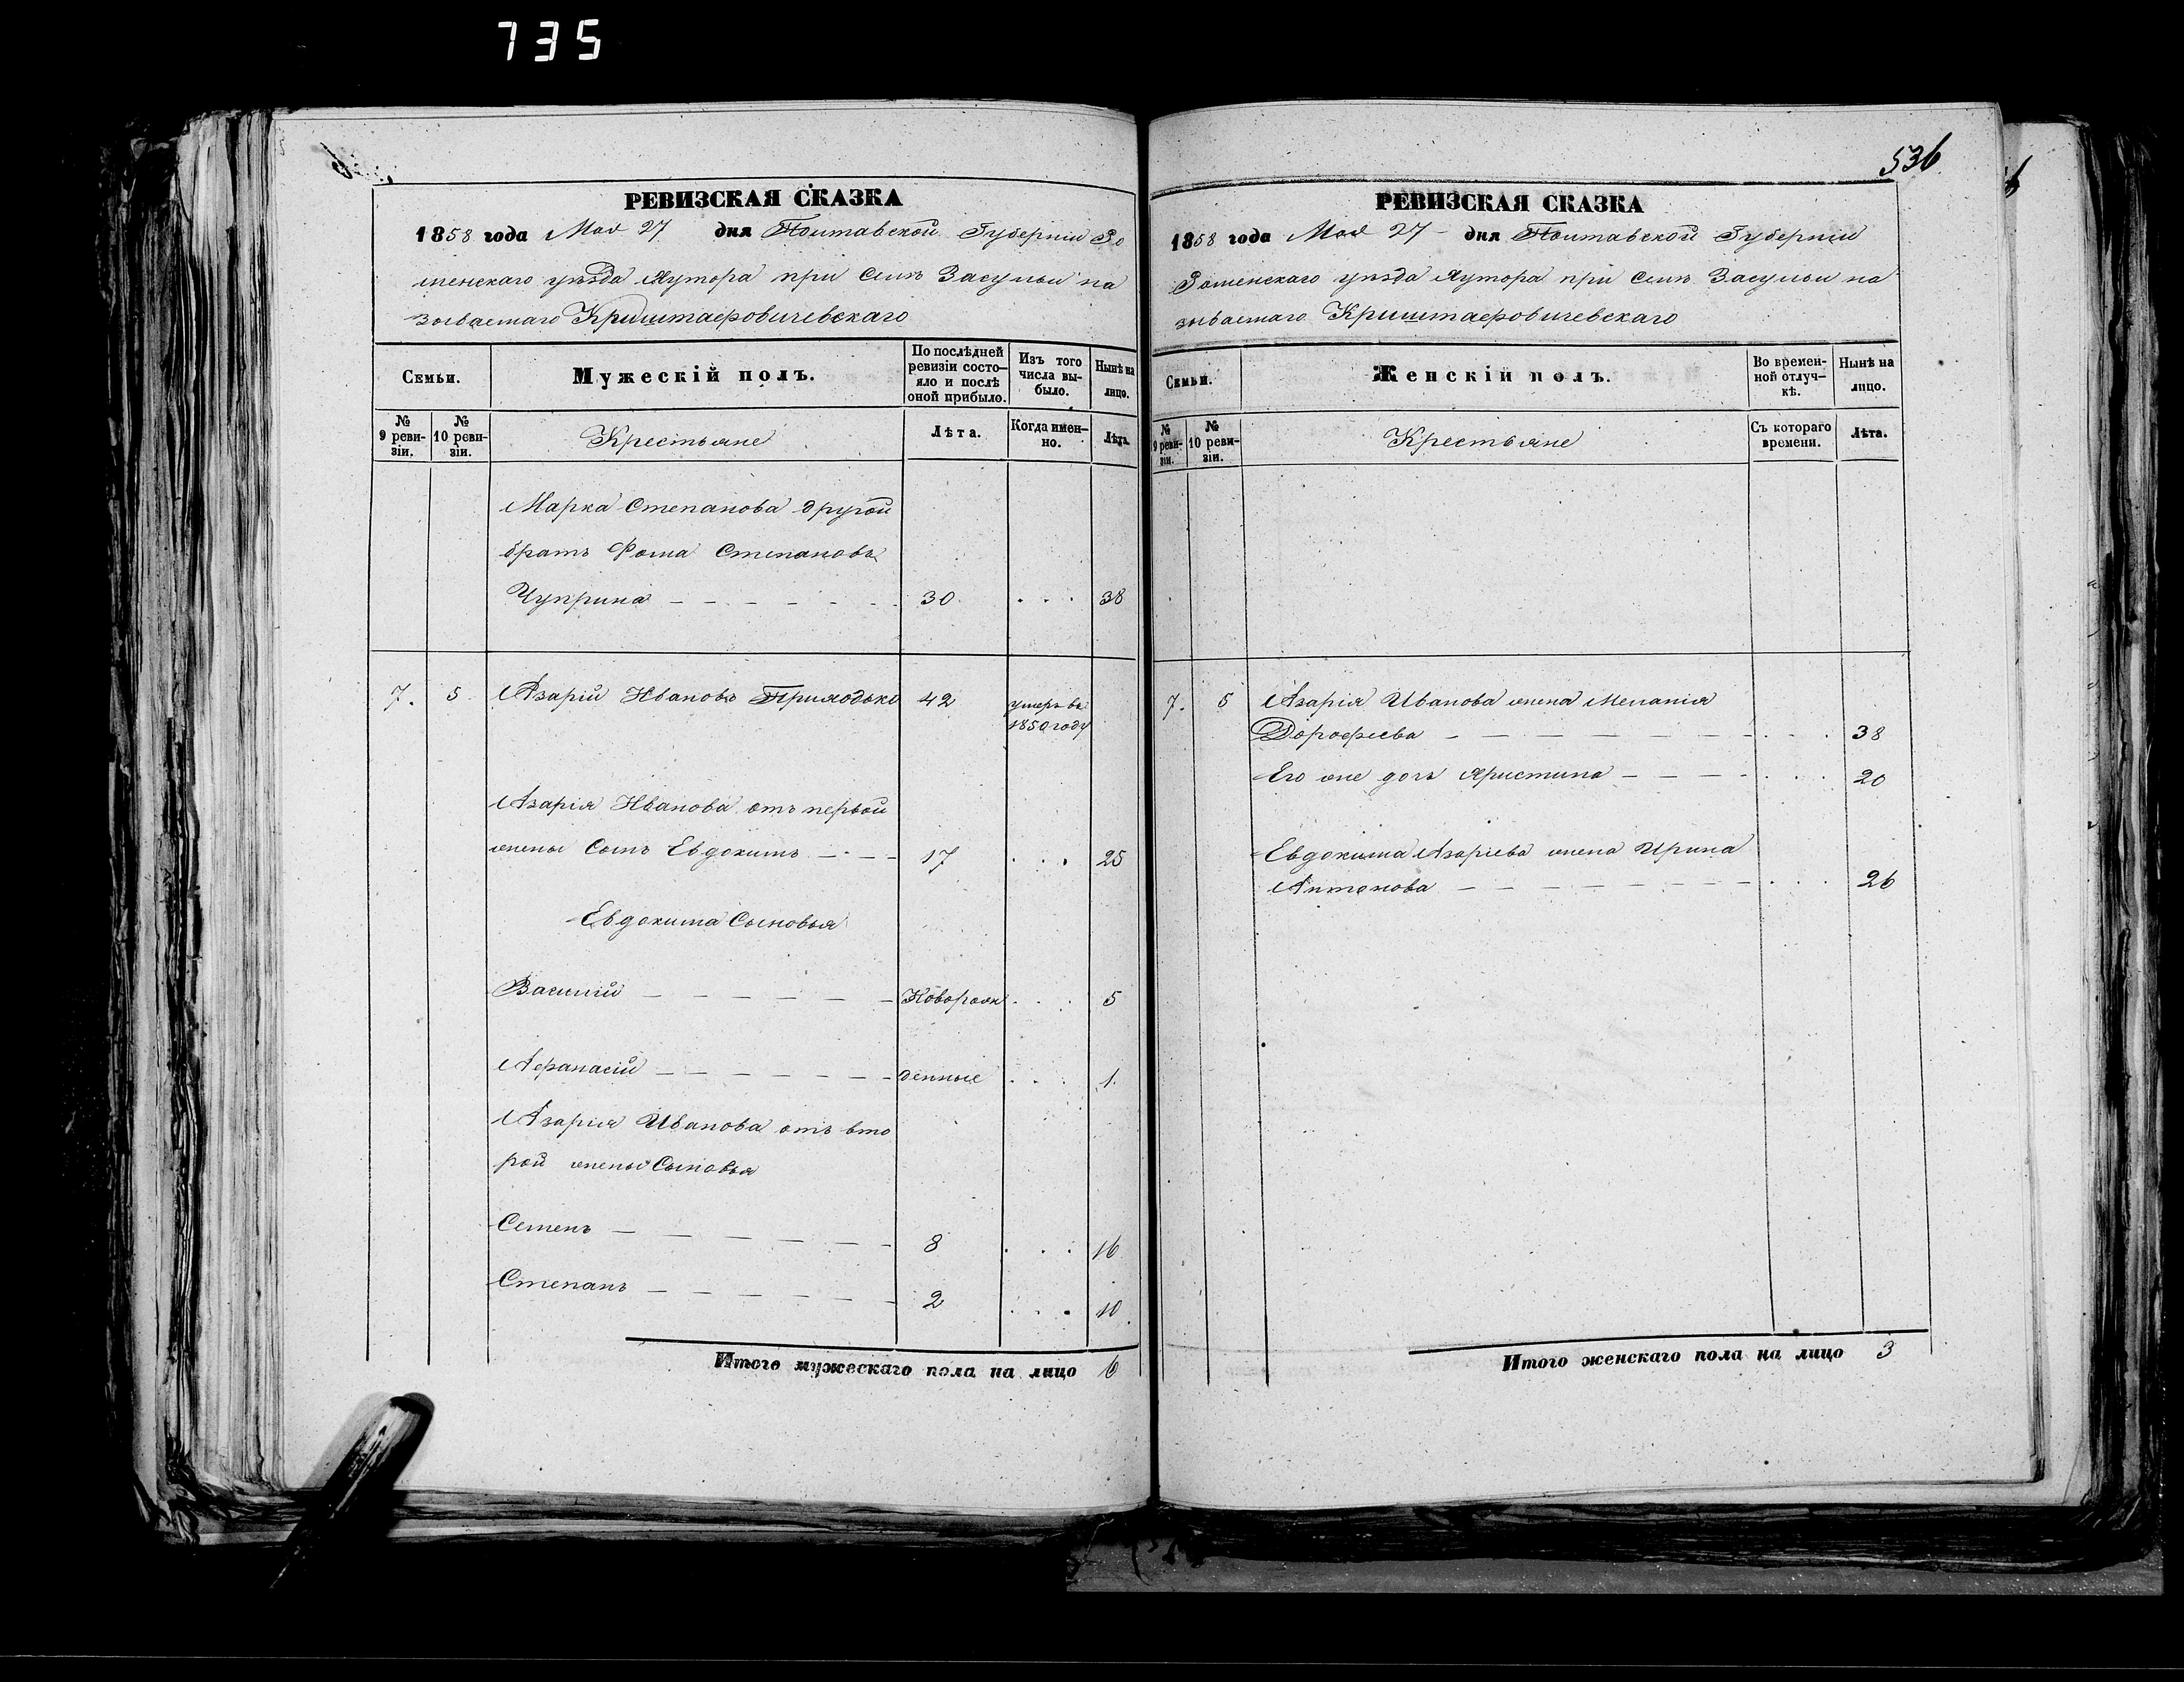 735
РЕВИЗСКАЯ СКАЗКА
1858 года Мая 27 дня Полтавской Губерніи Ро
менскаго уѣзда хутора при селѣ Засульи на
зываемаго Криштафовичевскаго
Семьи.
Мужескій полъ.
По послѣдней
ревизіи состо-
яло и послѣ
оной прибыло.
Изъ того
числа вы-
было.
Нынѣ на
лицо.
№
9 реви-
зіи.
№
10 реви-
зіи.
Крестьяне
Лѣта.
Когда имен-
но.
Лѣта.
Марка Степанова другой
братъ Фома Степановъ
Чуприна 30 . . . 38
7. 5 Азарій Ивановъ Приходько 42 умеръ въ
1850 году
Азарія Иванова отъ первой
жены Сынъ Евдокимъ 17 . . . 25
Евдокима Сыновья
Василій Новорож . . . 5
Афанасій денные . . . 1.
Азарія Иванова отъ вто
рой жены Сыновья
Семенъ 8 . . . 16
Степанъ 2 . . . 10.
Итого мужескаго пола на лицо 6
536
РЕВИЗСКАЯ СКАЗКА
1858 года Мая 27 дня Полтавской Губерніи
Роменскаго уѣзда хутора при селѣ Засульи на
зываемаго Криштафовичевскаго
Семьи.
Женскій полъ.
Во времен-
ной отлуч-
кѣ.
Нынѣ на
лицо.
№
9 реви-
зіи.
№
10 реви-
зіи.
Крестьяне
Съ котораго
времени.
Лѣта.
7. 5 Азарія Иванова жена Меланія
Дорофеева . . . 38
Его же дочь Христина . . . 20
Евдокима Азаріева жена Ирина
Антонова . . . 26
Итого женскаго пола на лицо 3